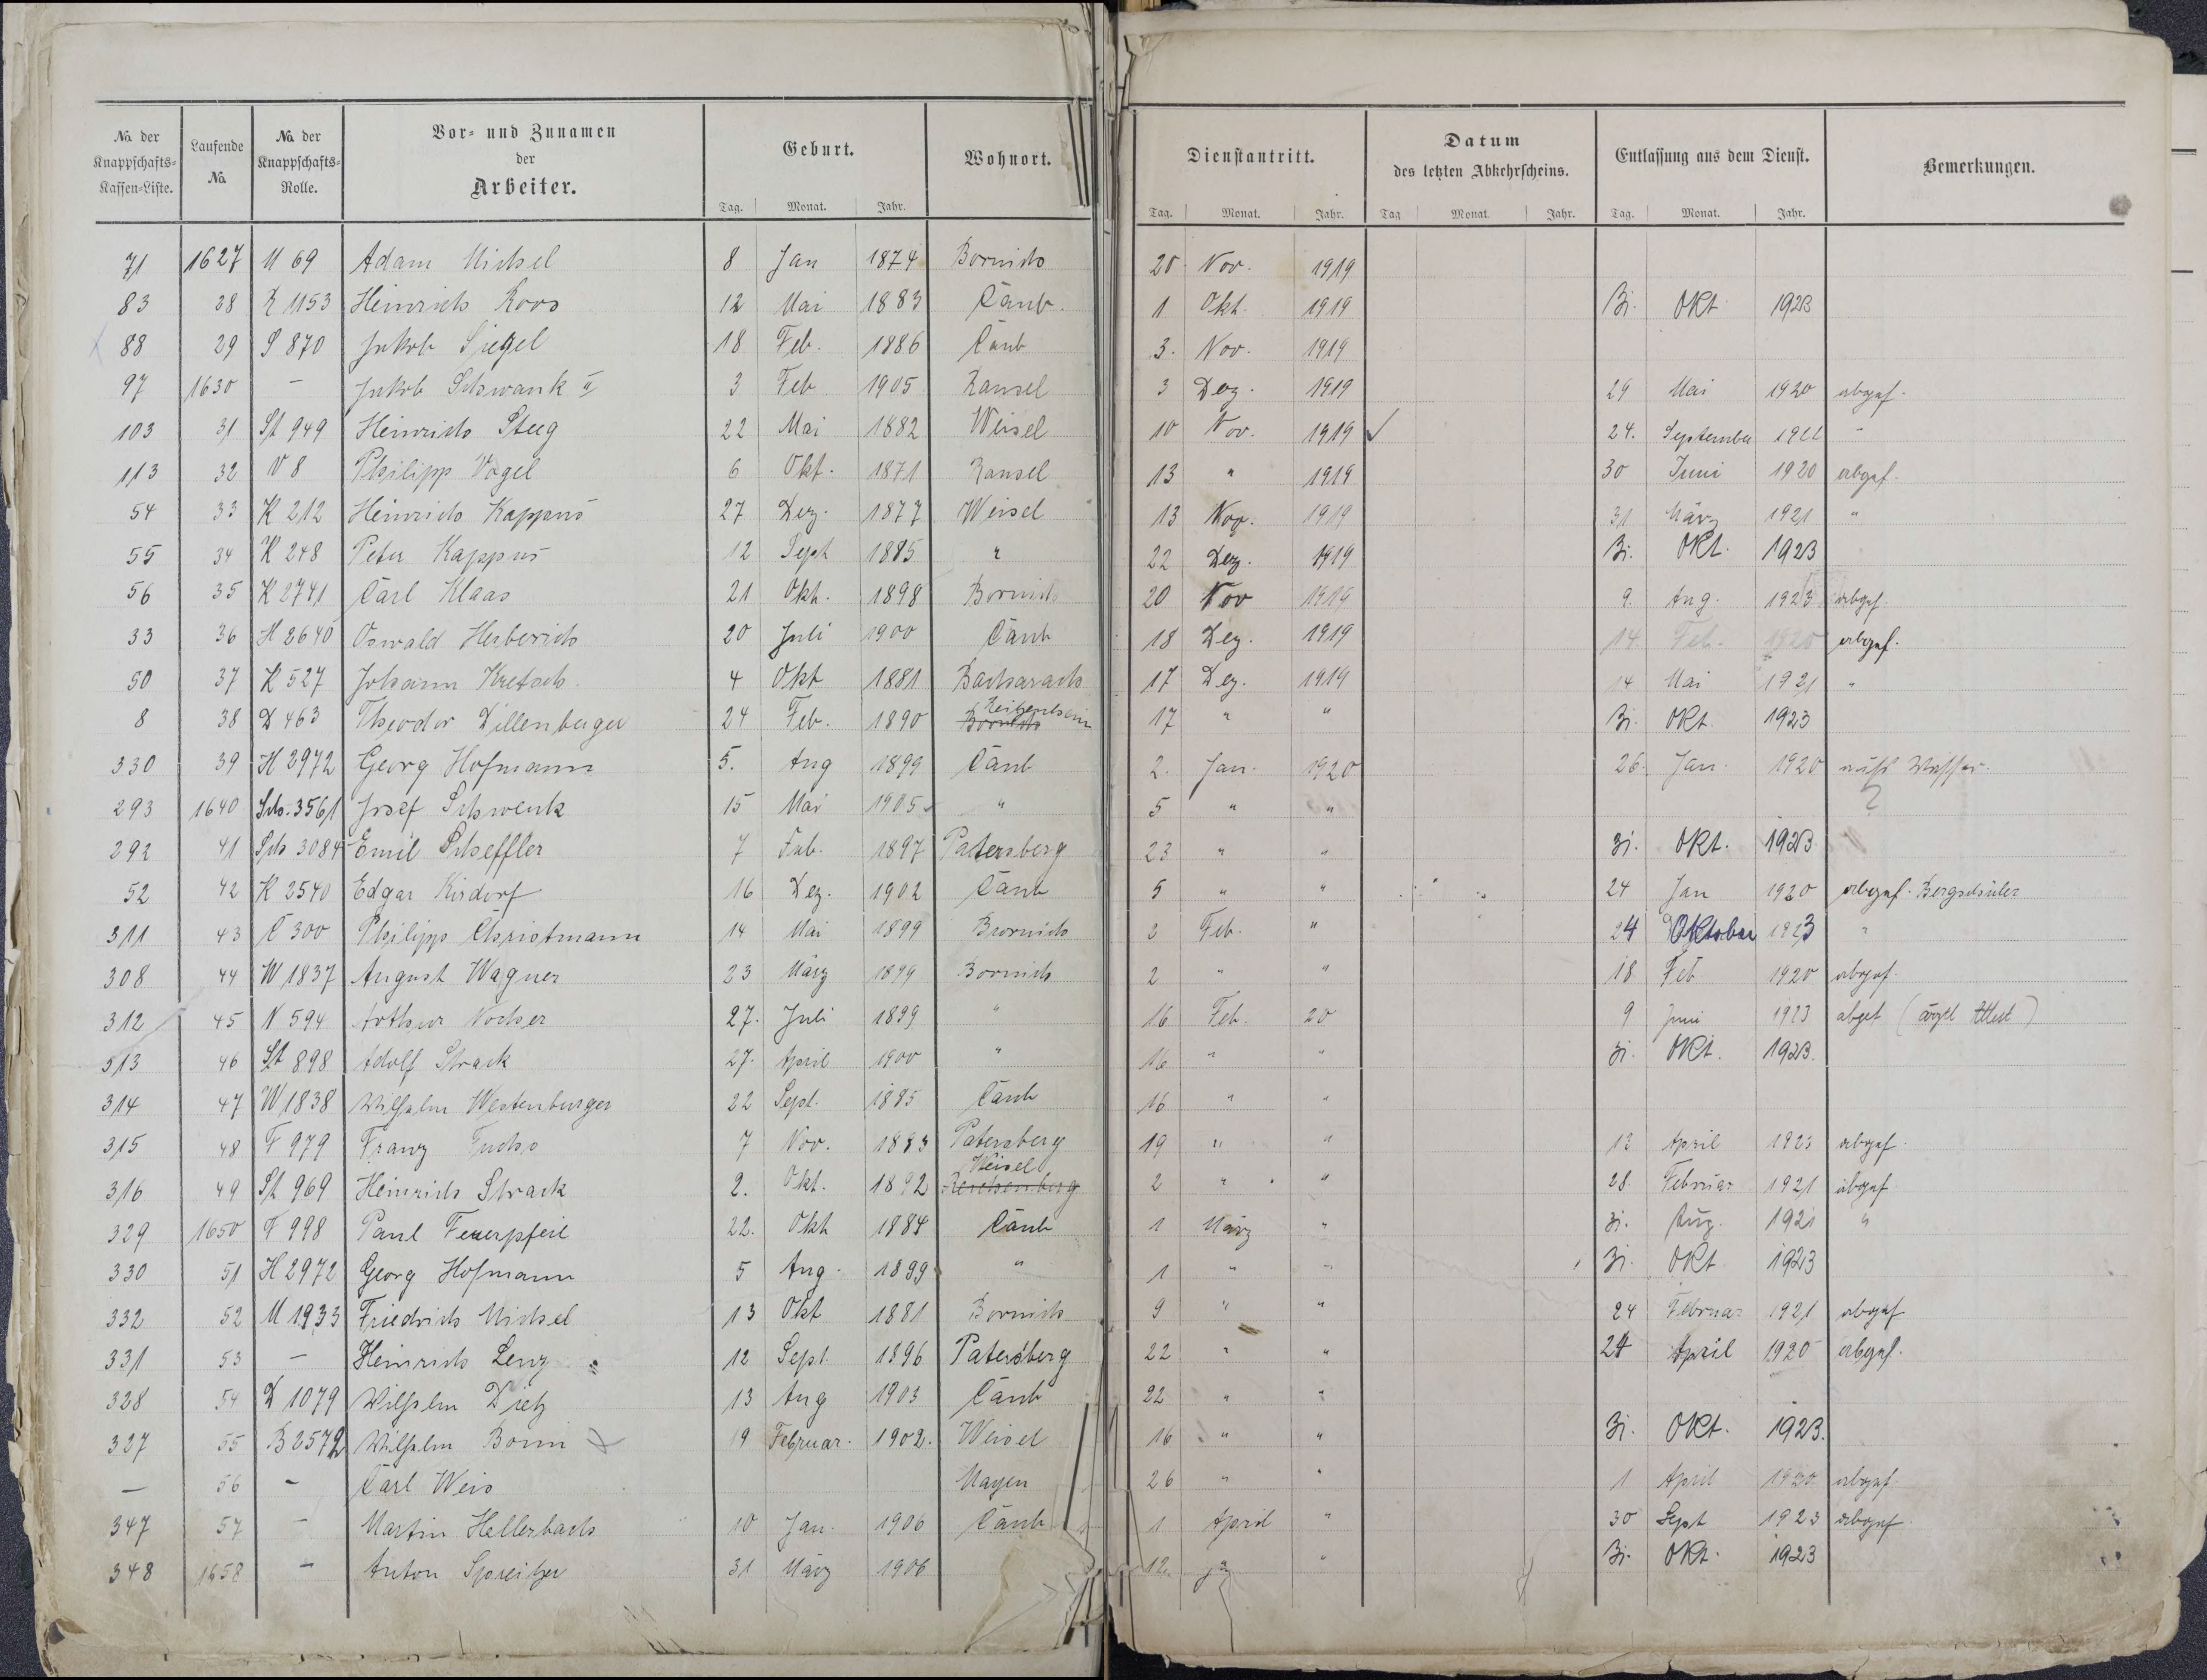 No. der Knappschafts-Kassen-Liste. Laufende No. No. der Knappschafts-Rolle. Vor- und Zunamen der Arbeiter. Geburt. Wohnort. Dienstantritt. Datum des letzten Abkehrscheins. Entlassung aus dem Dienst. Bemerkungen.
Tag. Monat. Jahr. Tag. Monat. Jahr. Tag Monat. Jahr. Tag. Monat. Jahr.
71 1627 M 69 Adam Michel 8 Jan 1874 Bornich 20. Nov. 1919
83 28 R 1153 Heinrich Roos 12 Mai 1883 Caub. 1 Okt. 1919 31. Okt. 1923
88 29 S 870 Jakob Siegel 18 Feb. 1886 Caub 3. Nov. 1919
97 1630 – Jakob Schwank II 3 Feb 1905 Ransel 3 Dez. 1919 29 Mai 1920 abgef.
103 31 St 949 Heinrich Steeg 22 Mai 1882 Weisel 10 Nov. 1919 24. September "
113 32 V 8 Philipp Vogel 6 Okt. 1871 Ransel 13 " 1919 30 Juni 1920 abgef.
54 33 K 212 Heinrich Kappus 27 Dez. 1877 Weisel 13 Nov. 1919 31 März 1921 "
55 34 K 248 Peter Kappus 12 Sept 1885 " 22 Dez. 1919 31. Okt. 1923
56 35 K 2741 Carl Klaas 21 Okt. 1898 Bornich 20 Nov 1919 9. Aug. 1923 abgef.
33 36 H 2640 Oswald Herberich 20 Juli 1900 Caub 18 Dez. 1919 14. Feb. 1920 abgef.
50 37 K 527 Johann Kretsch 4 Okt 1881 Bacharach 17 Dez. 1919 14 Mai 1921 "
8 38 D 463 Theodor Dillenberger 24 Feb. 1890 Bornich 17 " " 31. Okt. 1923
330 39 H 2972 Georg Hofmann 5. Aug 1899 Caub 2. Jan. 1920 26. Jan. 1920 aufs Wasser.
293 1640 Sch. 3561 Josef Schwenk 15 Mai 1905 " 5 " "
292 41 Sch 3084 Emil Scheffler 7 Feb. 1897 Patersberg 23 " " 31. Okt. 1923
52 42 K 2540 Edgar Kirdorf 16 Dez. 1902 Caub 5 " " 24 Jan 1920 abgef. Bergschüler
311 43 C 300 Philipp Christmann 14 Mai 1899 Bornich 2 Feb. " 24 Oktober 1923 "
308 44 W 1837 August Wagner 23 März 1899 Bornich 2 " " 18 Feb. 1920 abgef.
312 45 N 594 Arthur Nocher 27. Juli 1899 " 16 Feb. 20 9 Juni 1923 abget (ärztl Attest)
313 46 St 898 Adolf Strack 27. April 1900 " 16 " " 31. Okt. 1923.
314 47 W 1838 Wilhelm Westenburger 22 Sept. 1885 Caub 16 " "
315 48 F 979 Franz Fuchs 7 Nov. 1883 Patersberg 19 " " 12 April 1923 abgef.
316 49 St 969 Heinrich Strack 2. Okt. 1892 Reichenberg Weisel 2 " " 28. Februar 1921 abgef
329 1650 F 998 Paul Feuerpfeil 22. Okt 1884 Caub 1 März " 31. Aug. 1921 "
330 51 H 2972 Georg Hofmann 5 Aug. 1899 " 1 " " 31. Okt. 1923
332 52 M 1933 Friedrich Michel 13 Okt 1881 Bornich 9 " " 24 Februar 1921 abgef
331 53 – Heinrich Lenz 12 Sept. 1896 Patersberg 22 " " 24 April 1920 abgef.
328 54 D 1079 Wilhelm Dietz 13 Aug 1903 Caub 22 " "
327 55 B 2572 Wilhelm Bonn 19 Februar. 1902. Weisel 16 " " 31. Okt. 1923.
– 56 – Carl Weis Mayen 26 " " 1 April 1920 abgef.
347 57 – Martin Hellerbach 10 Jan. 1906 Caub 1 April " 30 Sept 1923 abgef.
348 1658 – Anton Spreitzer 31 März 1906 12. " 31. Okt. 1923